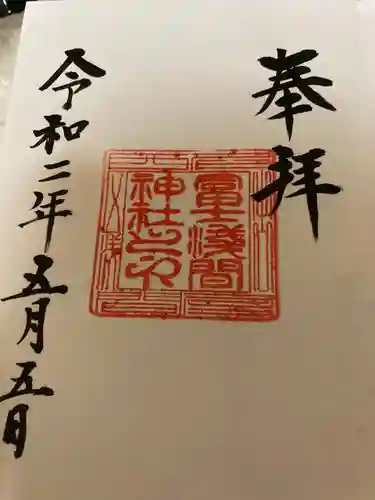 奉拝
冨士浅間
神社之印
令和二年五月五日